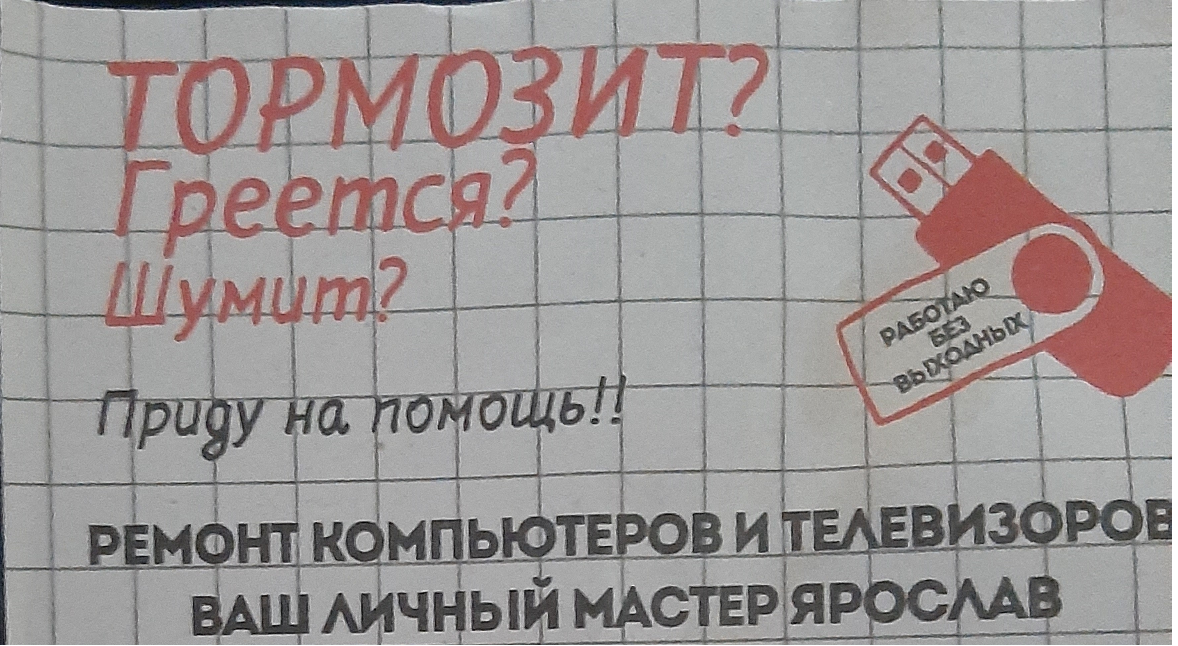 ТОРМОЗИТ?
Греется?
Шумит?
РАБОТАЮ
БЕЗ
ВЫХОДНЫХ
Приду на помощь!!
РЕМОНТ КОМПЬЮТЕРОВ И ТЕЛЕВИЗОРОВ
ВАШ ЛИЧНЫЙ МАСТЕР ЯРОСЛАВ